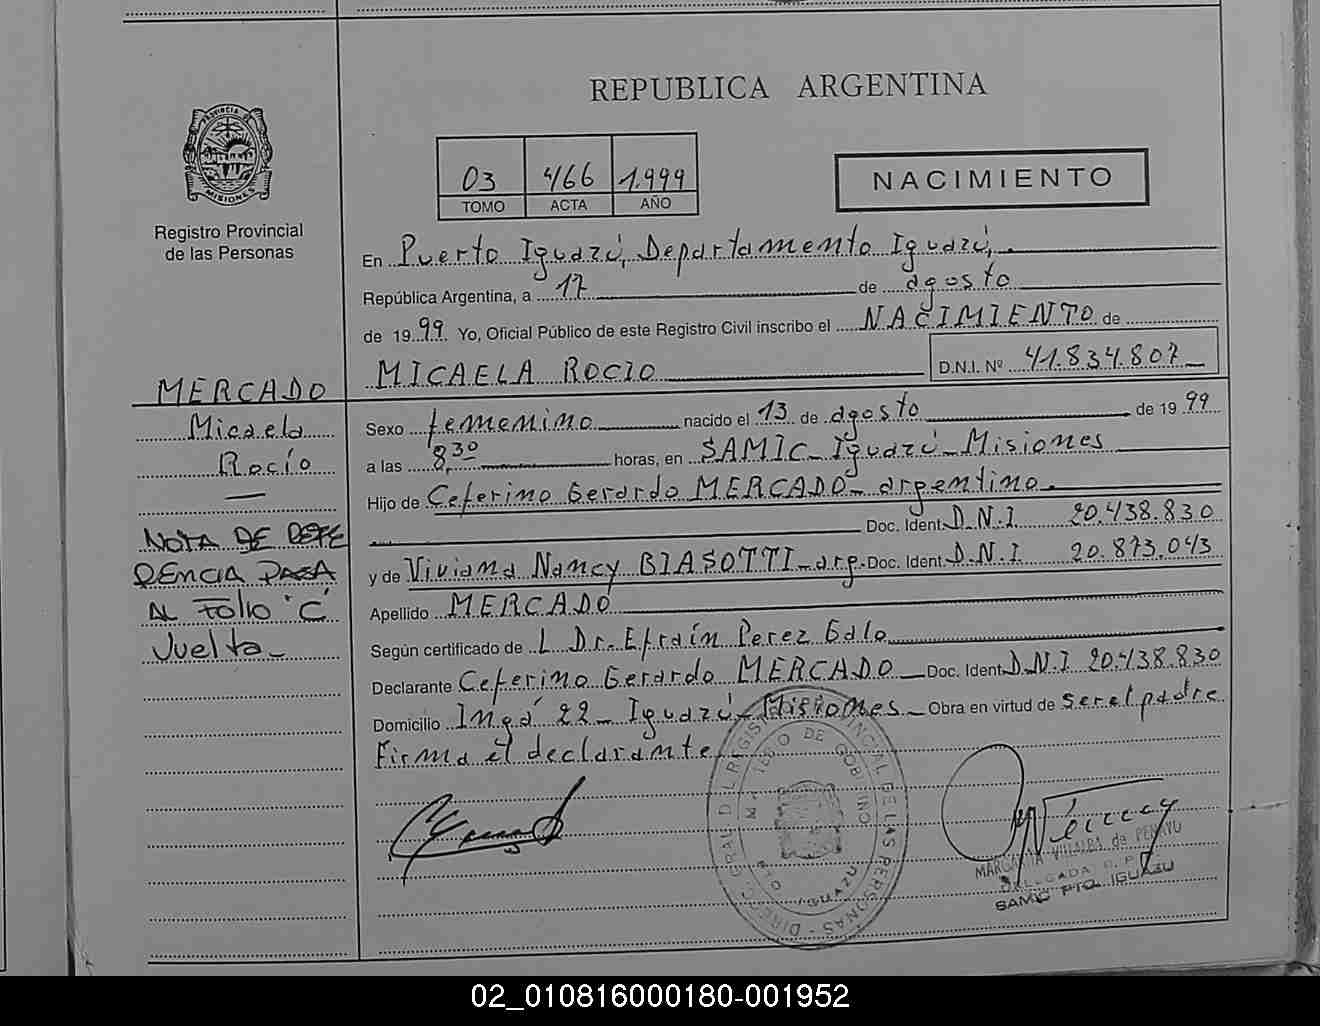 REPUBLICA ARGENTINA
PROVINCIA DE MISIONES
Registro Provincial
de las Personas
03 466 1.999
TOMO ACTA AÑO
NACIMIENTO
En Puerto Iguazú, Departamento Iguazú,
República Argentina, a 17 de agosto
de 19 99 Yo, Oficial Público de este Registro Civil inscribo el NACIMIENTO de
MICAELA ROCIO D.N.I. Nº 41.834.807
MERCADO
Micaela
Rocío
NOTA DE REFE
RENCIA PASA
AL FOLIO "C"
Vuelta
Sexo femenino nacido el 13 de agosto de 19 99
a las 8,30 horas, en SAMIC Iguazú Misiones
Hijo de Ceferino Gerardo MERCADO argentino.
Doc. Ident. D.N.I 20.438.830
y de Viviana Nancy BIASOTTI arg. Doc. Ident. D.N.I 20.873.043
Apellido MERCADO
Según certificado de L Dr. Efraín Perez Galo
Declarante Ceferino Gerardo MERCADO Doc. Ident. D.N.I 20.438.830
Domicilio Inga 22 Iguazú Misiones Obra en virtud de ser el padre
Firma el declarante
MARGARITA VILLALBA de PENAYO
DELEGADA R.P.
SAMIC PTO. IGUAZU
02_010816000180-001952